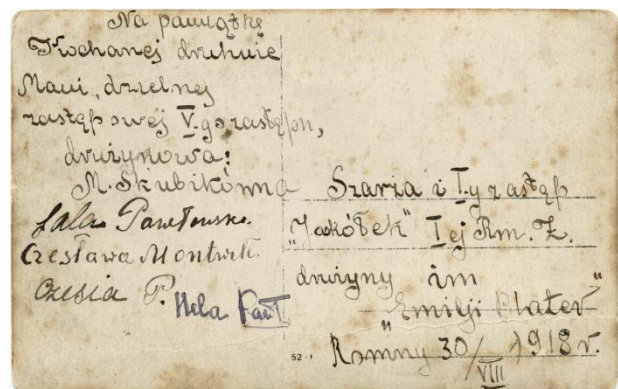 Na pamiątkę
Kochanej druhnie
Mani, dzielnej
zastępowéj V.go zastępu,
drużynowa:
M. Skubikówna
Lala Pawłowska.
Czesława Montwiłł.
Czesia P.
Hela Pawł
Szarża i I.y zastęp
"Jaskółek" I ej Rm. Ż.
drużyny im
"Emilji Plater"
52
Romny 30/VIII 1918 r.